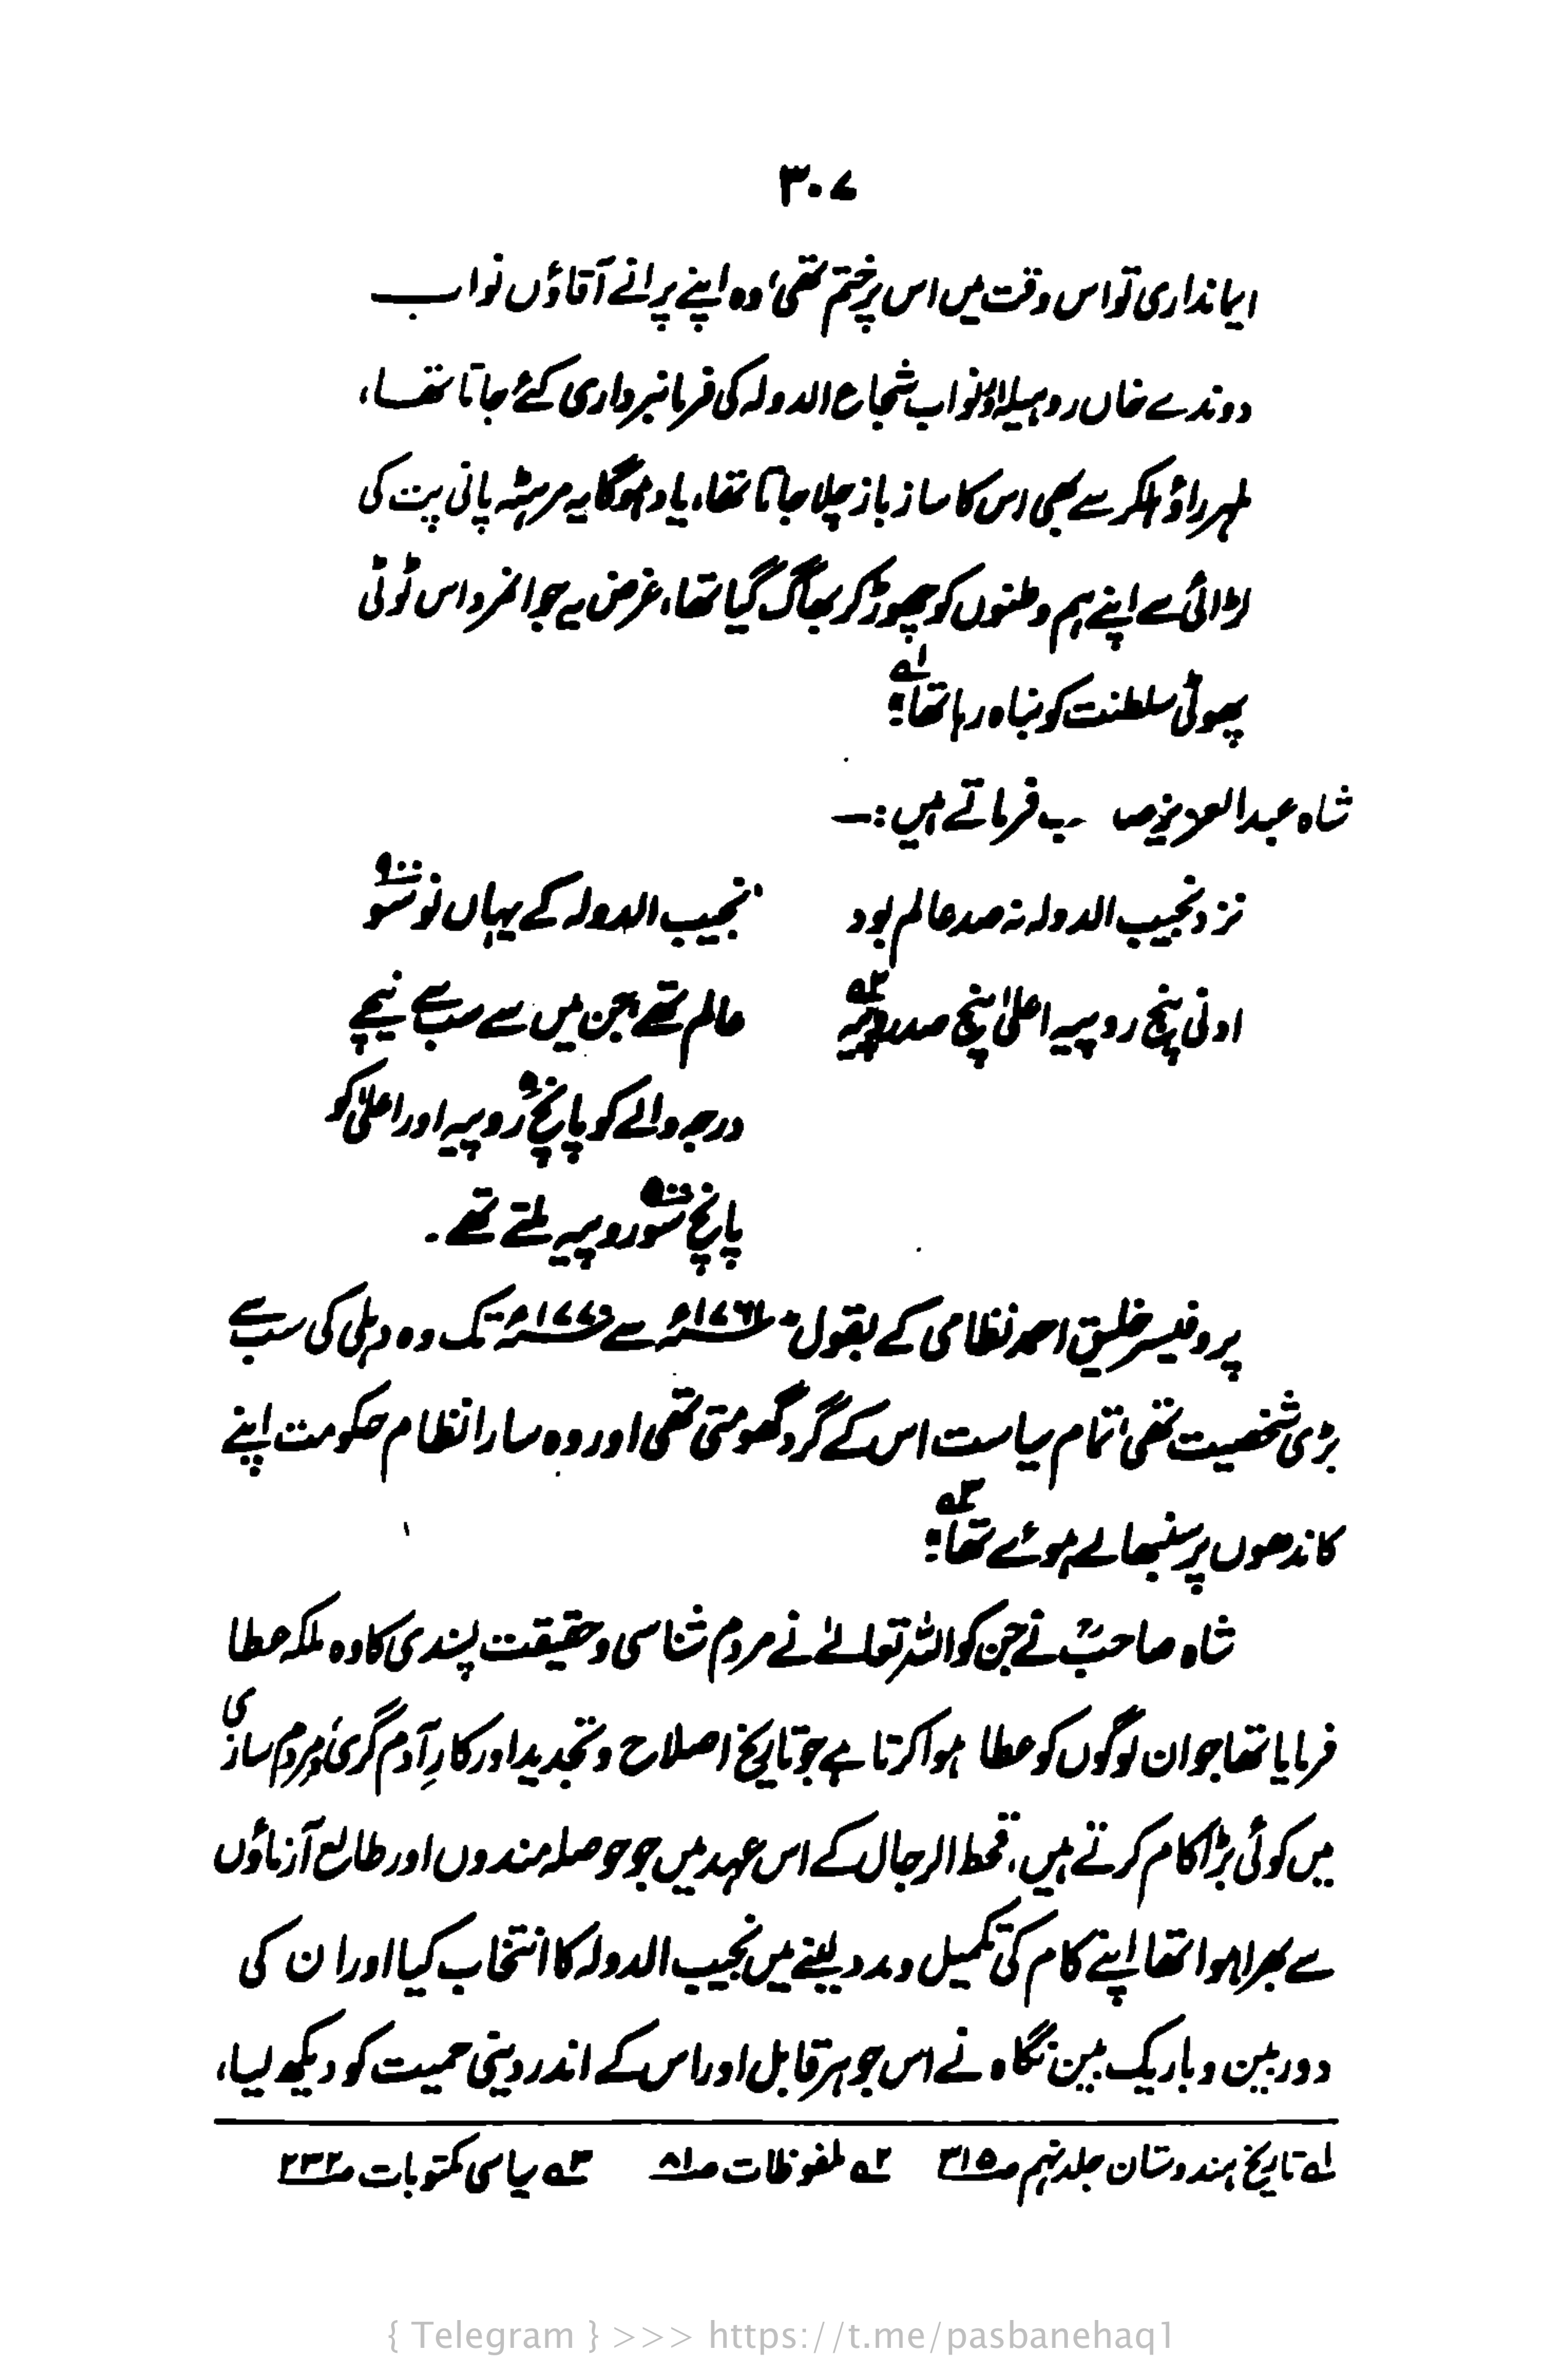 ۳۰۷
ایمانداری تو اس وقت میں اس پر ختم تھی، وہ اپنے پرانے آقاؤں نواب
دوندے خاں روہیلا اور نواب شجاع الدولہ کی فرمانبرداری کئے جاتا تھا،
ملہر راؤ ہلکر سے بھی اس کا ساز باز چلا جاتا تھا، یاد ہوگا یہ مرہٹہ پانی پت کی
لڑائی سے اپنے ہم وطنوں کو چھوڑ کر بھاگ گیا تھا، غرض یہ جوانمرد اس ٹوٹی
پھوٹی سلطنت کو نباہ رہا تھا"؂۱
شاہ عبدالعزیز صا ب فرماتے ہیں:—
نزد نجیب الدولہ نہ صد عالم بود
ادنی پنج روپیہ اعلیٰ پنج صد روپیہ؂۲
نجیب الدولہ کے یہاں نو سو ۹۰۰
عالم تھے جن میں سے سب سے نیچے
درجہ والے کو پانچ ۵ روپیہ اور اعلیٰ کو
پانچ سو ۵۰۰ روپیہ ملتے تھے۔
پروفیسر خلیق احمد نظامی کے بقول "۱۷۶۱ء سے ۱۷۷۰ء تک وہ دہلی کی سب سے
بڑی شخصیت تھی، تمام سیاست اس کے گرد گھومتی تھی اور وہ سارا نظام حکومت اپنے
کاندھوں پر سنبھالے ہوئے تھا"؂۳
شاہ صاحبؒ نے جن کو اللہ تعالےٰ نے مردم شناسی و حقیقت پسندی کا وہ ملکہ عطا
فرمایا تھا جو ان لوگوں کو عطا ہوا کرتا ہے جو تاریخ اصلاح و تجدید اور کارِ آدم گری و مردم سازی
میں کوئی بڑا کام کرتے ہیں، قحط الرجال کے اس عہد میں جو حوصلہ مندوں اور طالع آزماؤں
سے بھرا ہوا تھا اپنے کام کی تکمیل و مدد لینے میں نجیب الدولہ کا انتخاب کیا اور ان کی
دوربین و باریک بین نگاہ نے اس جوہر قابل اور اس کے اندر دینی حمیت کو دیکھ لیا،
؂۱ تاریخ ہندوستان جلد نہم ص۳۱۵ ؂۲ ملفوظات ص۸۱ ؂۳ سیاسی مکتوبات ص۲۳۲
{ Telegram } >>> https://t.me/pasbanehaq1